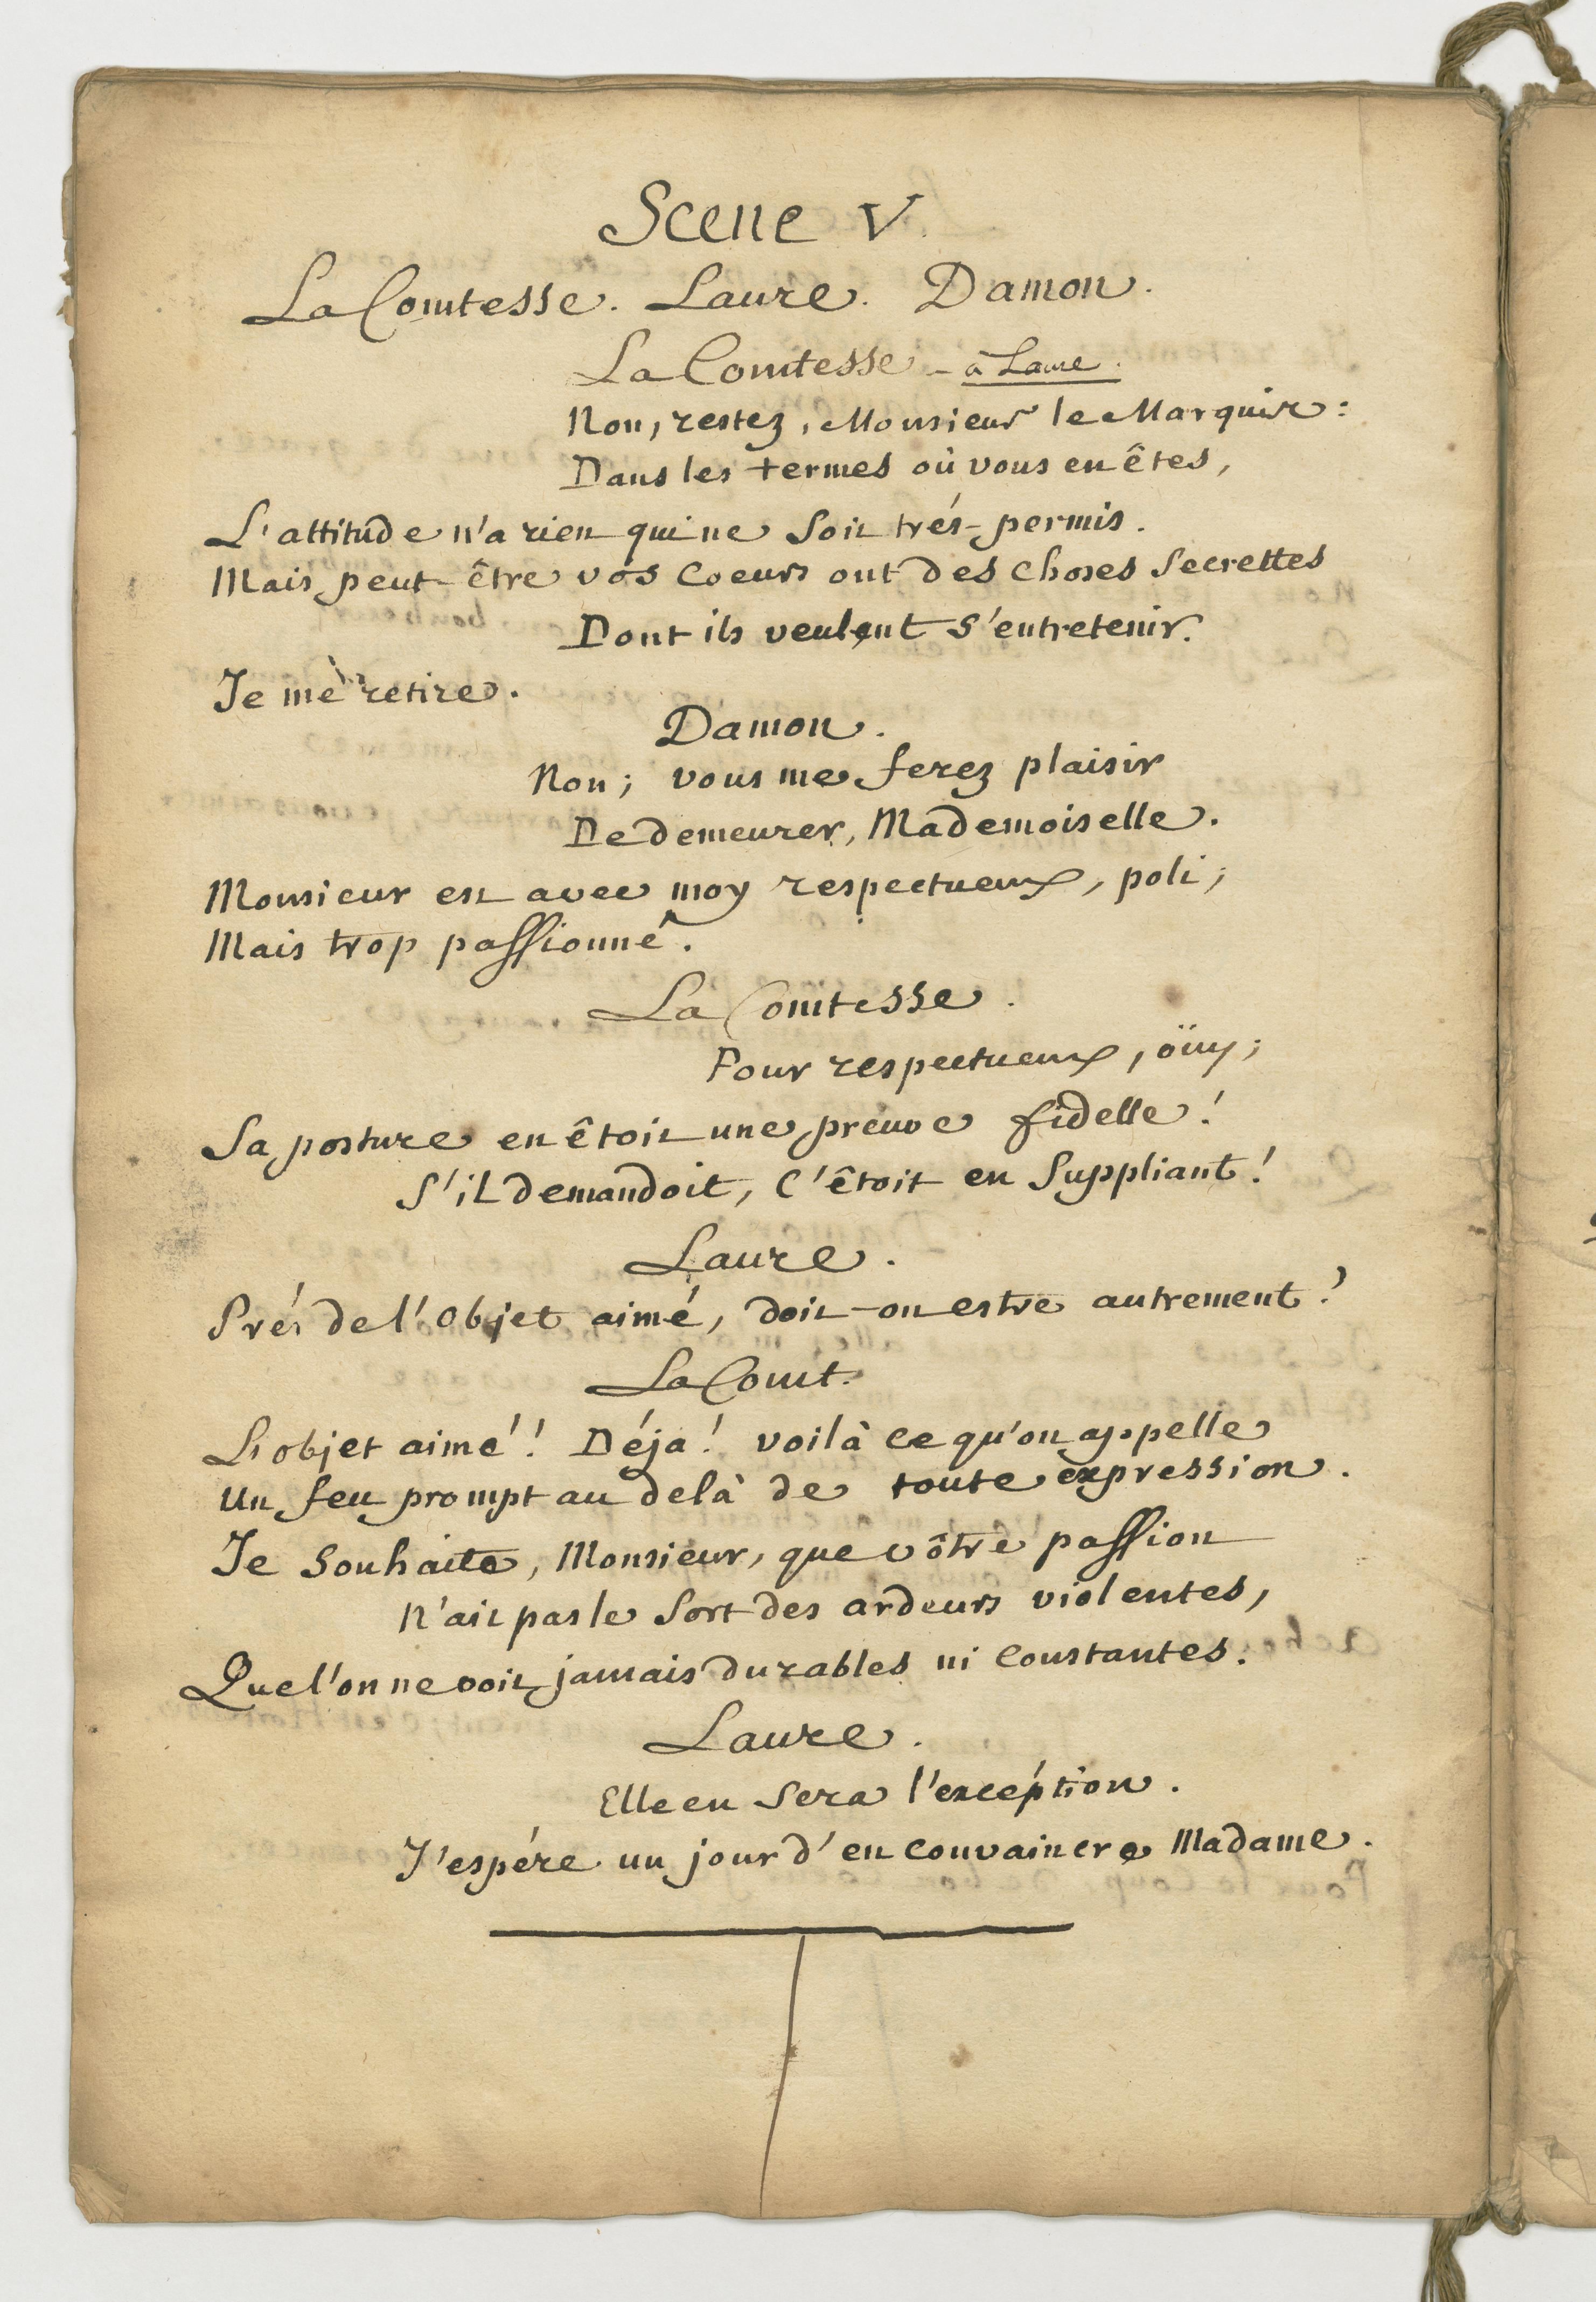 Scene V.
La Comtesse. Laure. Damon.
La Comtesse - à Laure.
Non, restez, Monsieur le Marquis:
Dans les termes où vous en êtes,
L'attitude n'a rien qui ne soit trés-permis.
Mais peut-être vos coeurs ont des choses secrettes
Dont ils veulent s'entretenir.
Je me retire.
Damon.
Non; vous me ferez plaisir
De demeurer, Mademoiselle.
Monsieur est avec moy respectueux, poli;
Mais trop passionné.
La Comtesse.
Pour respectueux, öuy;
Sa posture en êtoit une preuve fidelle!
S'il demandoit, c'êtoit en suppliant!
Laure.
Prés de l'objet aimé, doit-on estre autrement?
La Comt.
L'objet aimé! Déja! voilà ce qu'on appelle
Un feu prompt au delà de toute expression.
Je souhaite, Monsieur, que vôtre passion
N'ait pas le sort des ardeurs violentes,
Que l'on ne voit jamais durables ni constantes.
Laure.
Elle en sera l'excéption.
J'espére un jour d'en convaincre Madame.